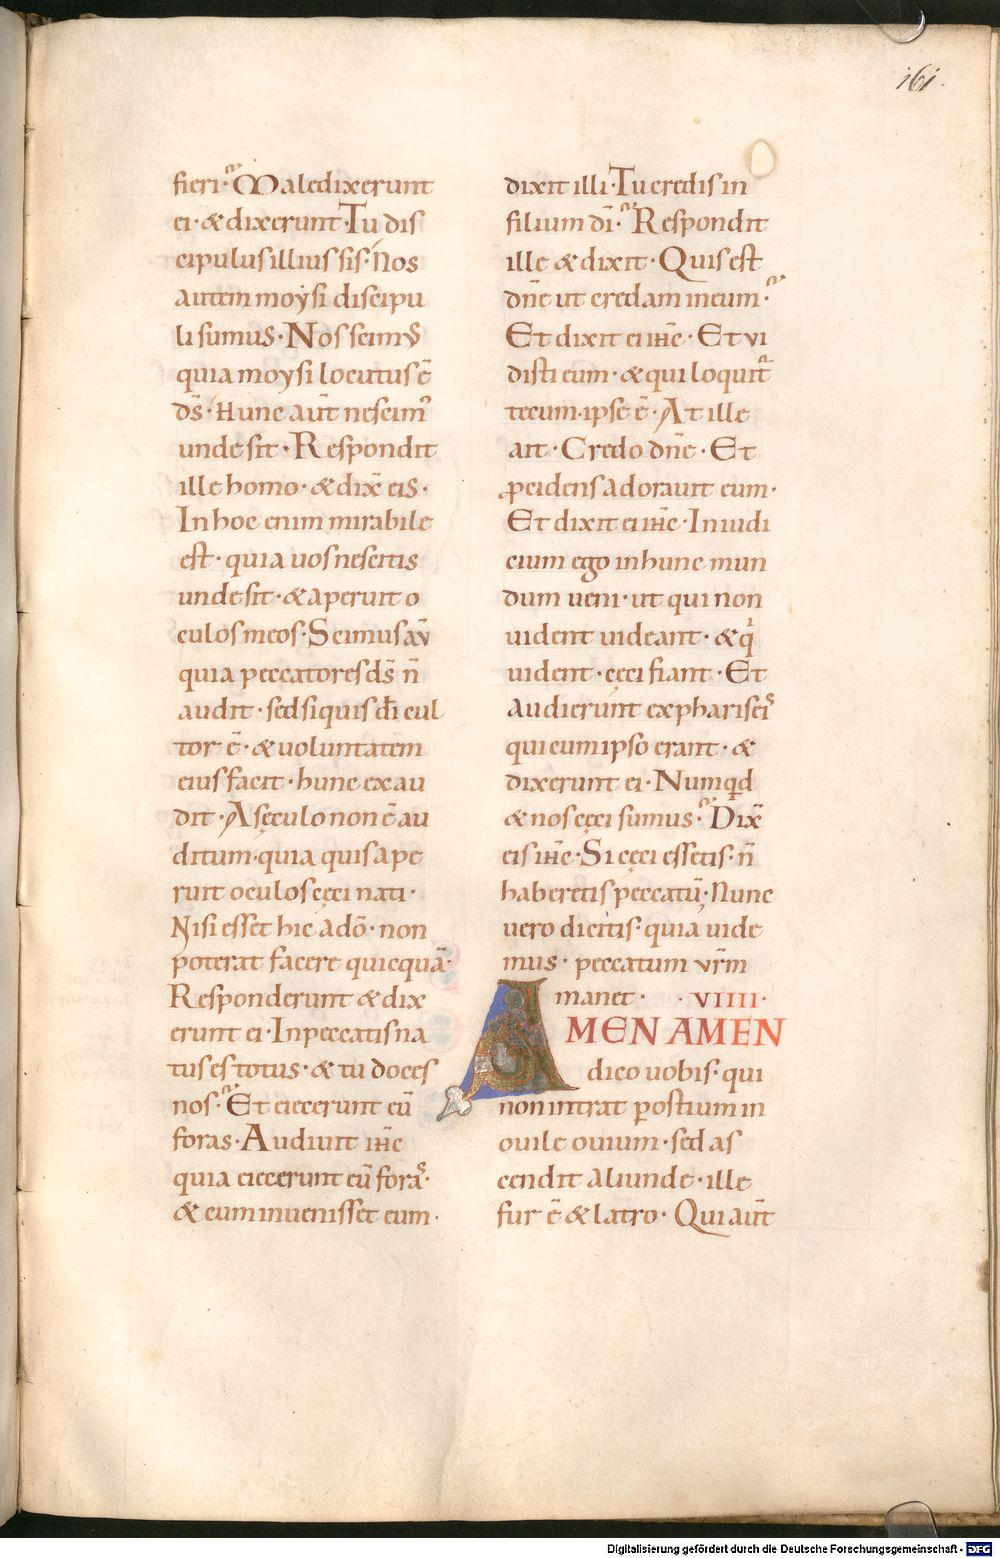 161.
fieri· Maledixerunt
ei·&dixerunt·Tu dis
cipulus illius sis·Nos
autem moysi discipu
li sumus·Nos scimus
quia moysi locutus ē
ds̄·Hunc aūt nescim᾽
unde sit·Respondit
ille homo·&dix̄ eis·
In hoc enim mirabile
est·quia uos nescitis
unde sit·&aperuit o
culos meos·Scimus aū
quia peccatores ds̄ n̄
audit·sed si quis dī cul
tor ē·&uoluntatem
eius facit·hunc exau
dit·A sęculo non ē au
ditum·quia quis ape
ruit oculos cęci nati·
Nisi esset hic a dō·non
poterat facere quicquā·
Responderunt & dix
erunt ei·In peccatis na
tus es totus·& tu doces
nos· Et eiecerunt eū
foras·Audiuit ihc̄
quia eiecerunt eū foras·
& cum inuenisset eum·
dixit illi·Tu credis in
filium dī· Respondit
ille & dixit·Quis est
dn̄e ut credam in eum·
Et dixit ei ihc̄·Et vi
disti eum·&qui loquit᾽
tecum·ipse ē·At ille
ait·Credo dn̄e·Et
ꝓcidens adorauit eum·
Et dixit ei ihc̄·In iudi
cium ego in hunc mun
dum ueni·ut qui non
uident uideant·&qͥ
uident·cęci fiant·Et
audierunt ex phariseis
qui cum ipso erant·&
dixerunt ei·Numqͥd
& nos cęci sumus· Dix̄
eis ihc̄·Si cęci essetis·n̄
haberetis peccatū·Nunc
uero dicitis·quia uide
mus· peccatum vr̄m
manet· ·VIIII·
AMEN AMEN
dico uobis·qui
non intrat ꝑ ostium in
ouile ouium·sed as
cendit aliunde·ille
fur ē & latro· Qui aūt
Digitalisierung gefördert durch die Deutsche Forschungsgemeinschaft - DFG